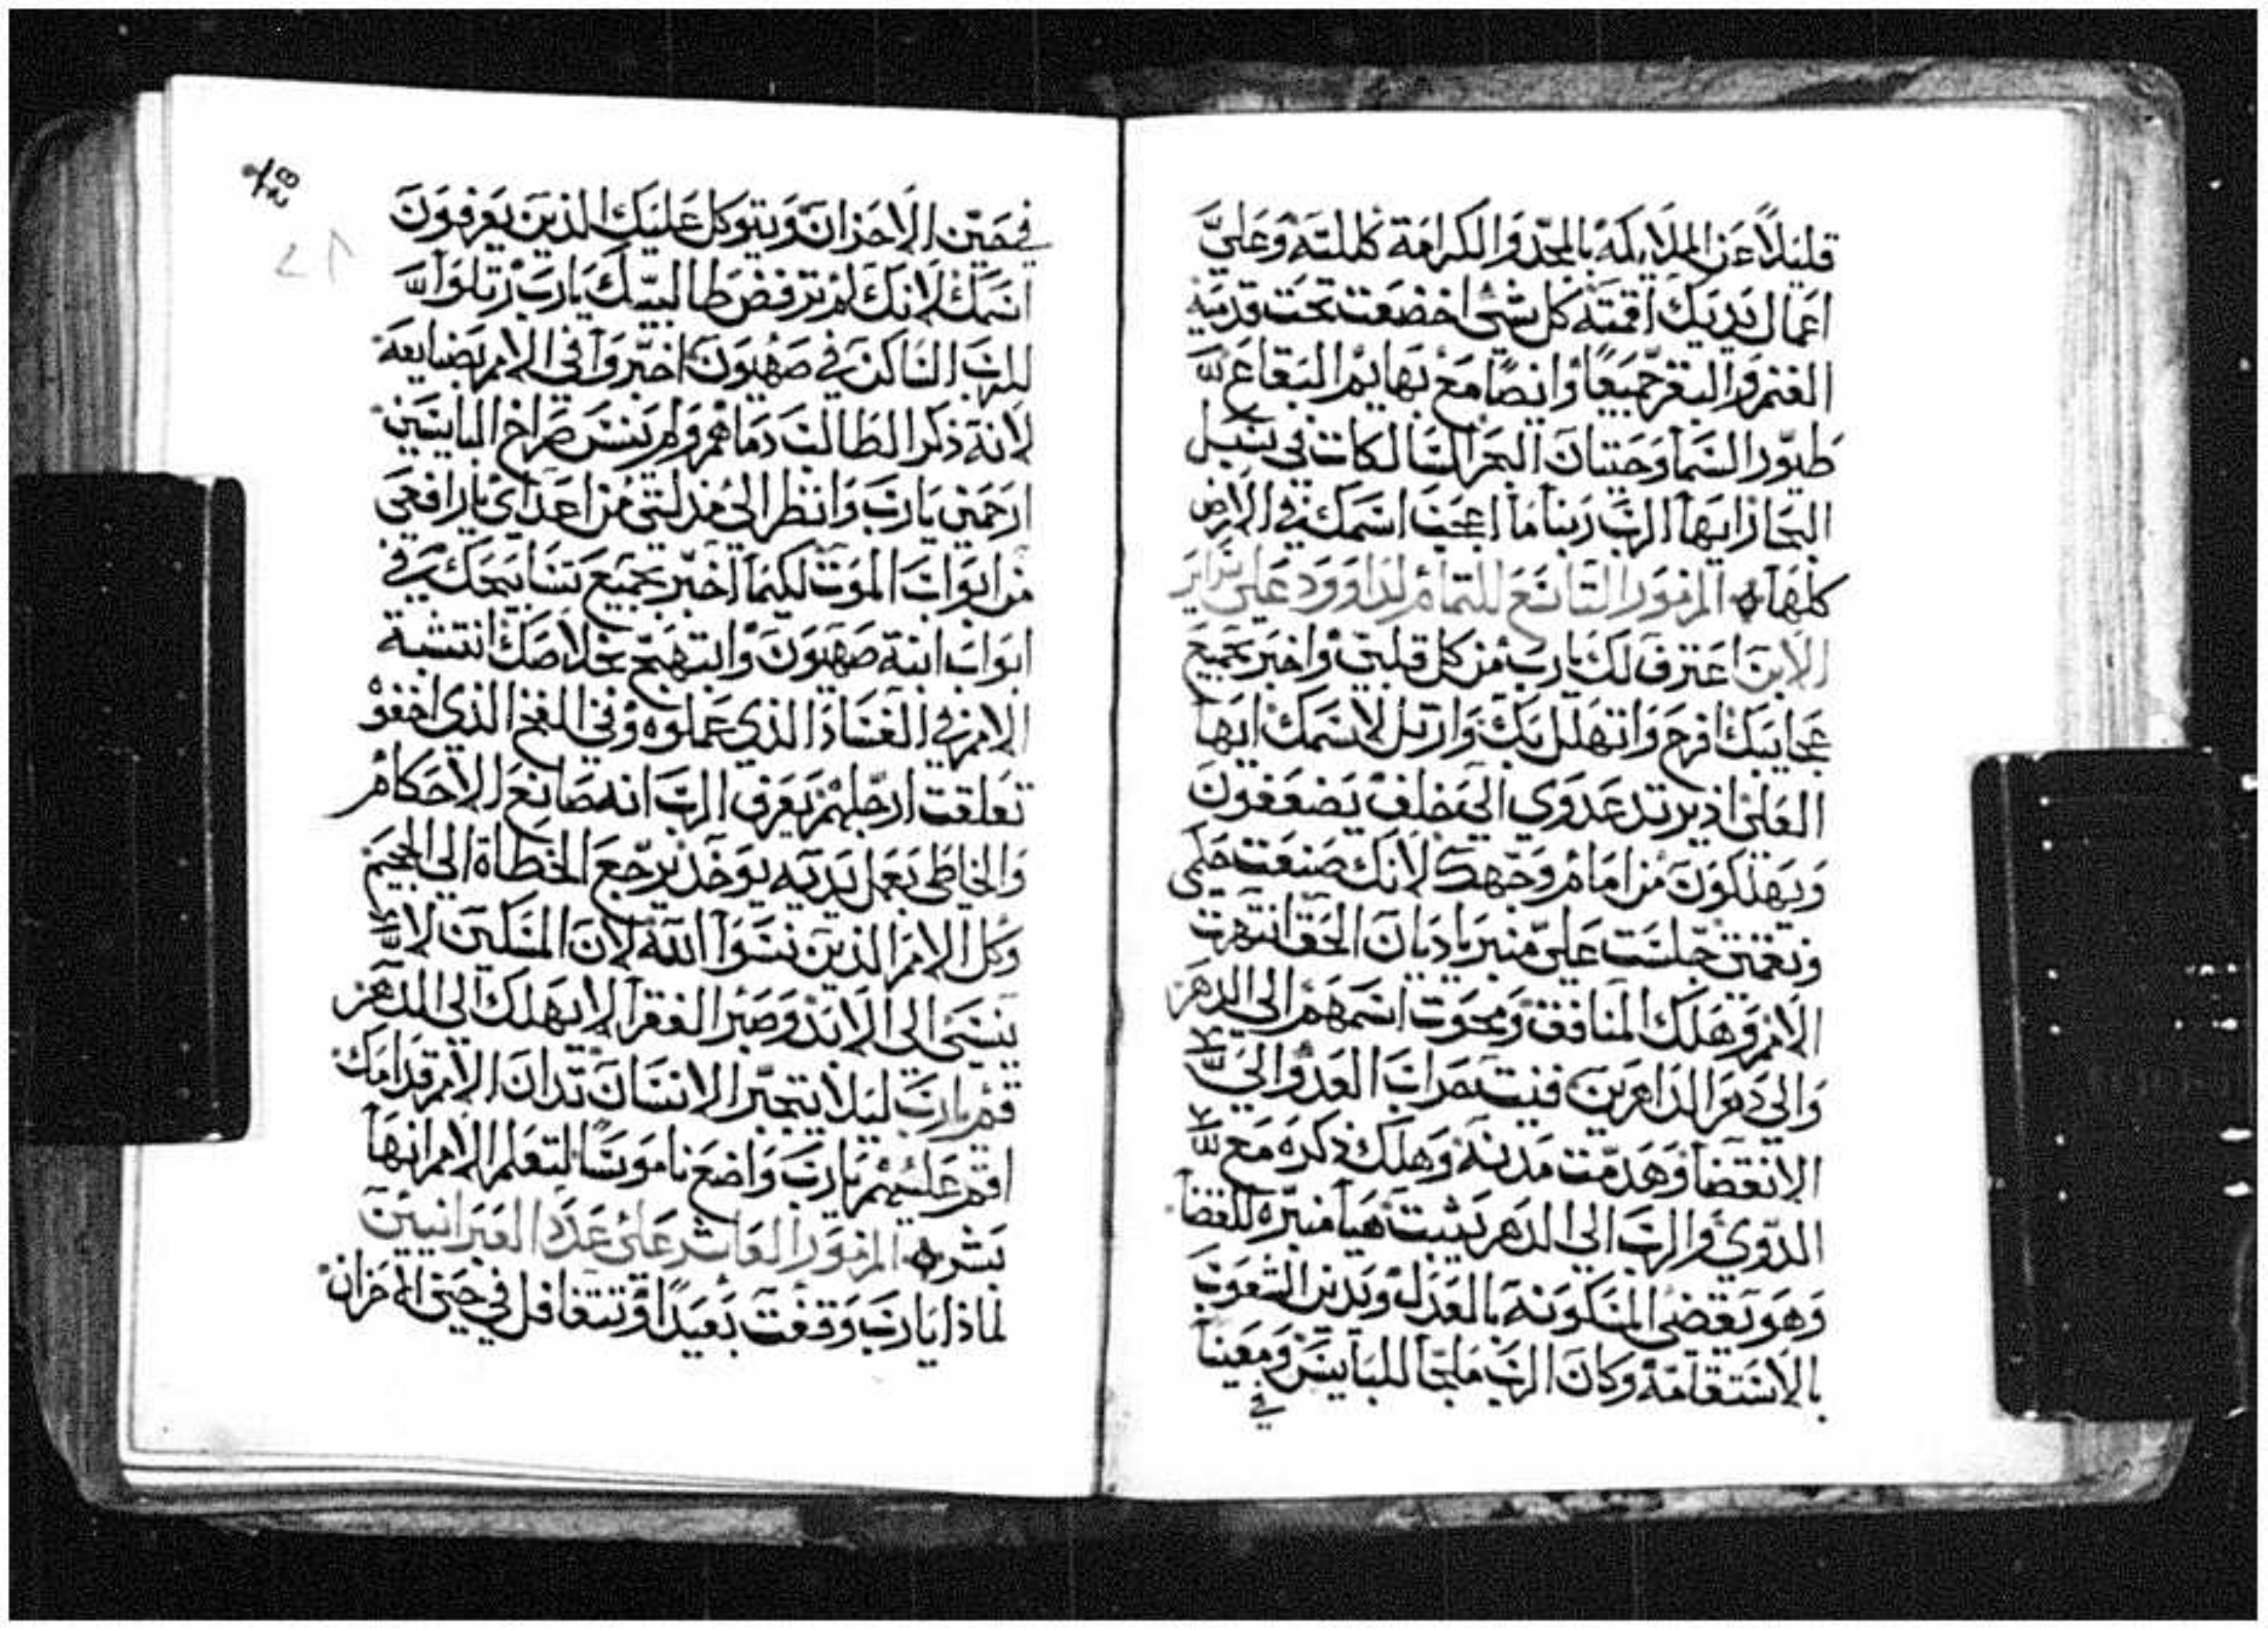 قليلاً عن الملايكه بالمجد والكرامة كللته وعلي
اعمال يديك اقمته كل شي اخضعت تحت قدميه
الغنم والبقر جميعًا وايضًا مع بهايم البقاع
طيور السما وحيتان البحر السالكات في سبل
البحار ايها الرب ربنا ما اعجب اسمك في الارض
كلها المزمور التاسع للتمام لداوود علي سراير
الابن اعترف لك يارب من كل قلبي واخبر بجميع
عجايبك افرح واتهلل بك وارتل لاسمك ايها
العلي اذ يرتد عدوي الي خلف يضعفون
ويهلكون من امام وجهك لانك صنعت حكمي
ونقمتي جلست علي منبر يا ديان الحق انتهرت
الامم وهلك المنافق ومحوت اسمهم الي الدهر
والي دهر الداهرين فنيت حراب العدو الي
الانقضا وهدمت مدنه وهلك ذكره مع
الدوي والرب الي الدهر يثبت هيا منبره للقضا
وهو يقضي المسكونه بالعدل ويدين الشعوب
بالاستقامة وكان الرب ملجا للبايس ومعينا
في
في حين الاحزان ويتوكل عليك الذين يعرفون
اسمك لانك لم ترفض طالبيك يارب رتلوا
للرب الساكن في صهيون اخبروا في الامم بضايعه
لانه ذكر الطالب دماهم ولم ينس صراخ البايسين
ارحمني يارب وانظر الي مذلتي من اعداي يا رافعي
من ابواب الموت لكيما اخبر بجميع تسابيحك في
ابواب ابنة صهيون وابتهج بخلاصك انتشبة
الامم في الفساد الذي عملوه وفي الفخ الذي اخفوه
تعلقت ارجلهم يعرف الرب انه صانع الاحكام
والخاطي بعمل يديه يوخذ يرجع الخطاة الي الجحيم
وكل الامم الذين نسوا الله لان المسكين لا
ينسي الي الابد وصبر الفقرا لا يهلك الي الدهر
قم يارب ليلا يتجبر الانسان تدان الامم قدامك
اقم عليهم يارب واضع ناموسًا لتعلم الامم انها
بشر المزمور العاشر علي عدد العبرانيين
لماذا يارب وقفت بعيدًا وتتغافل في حين الاحزان